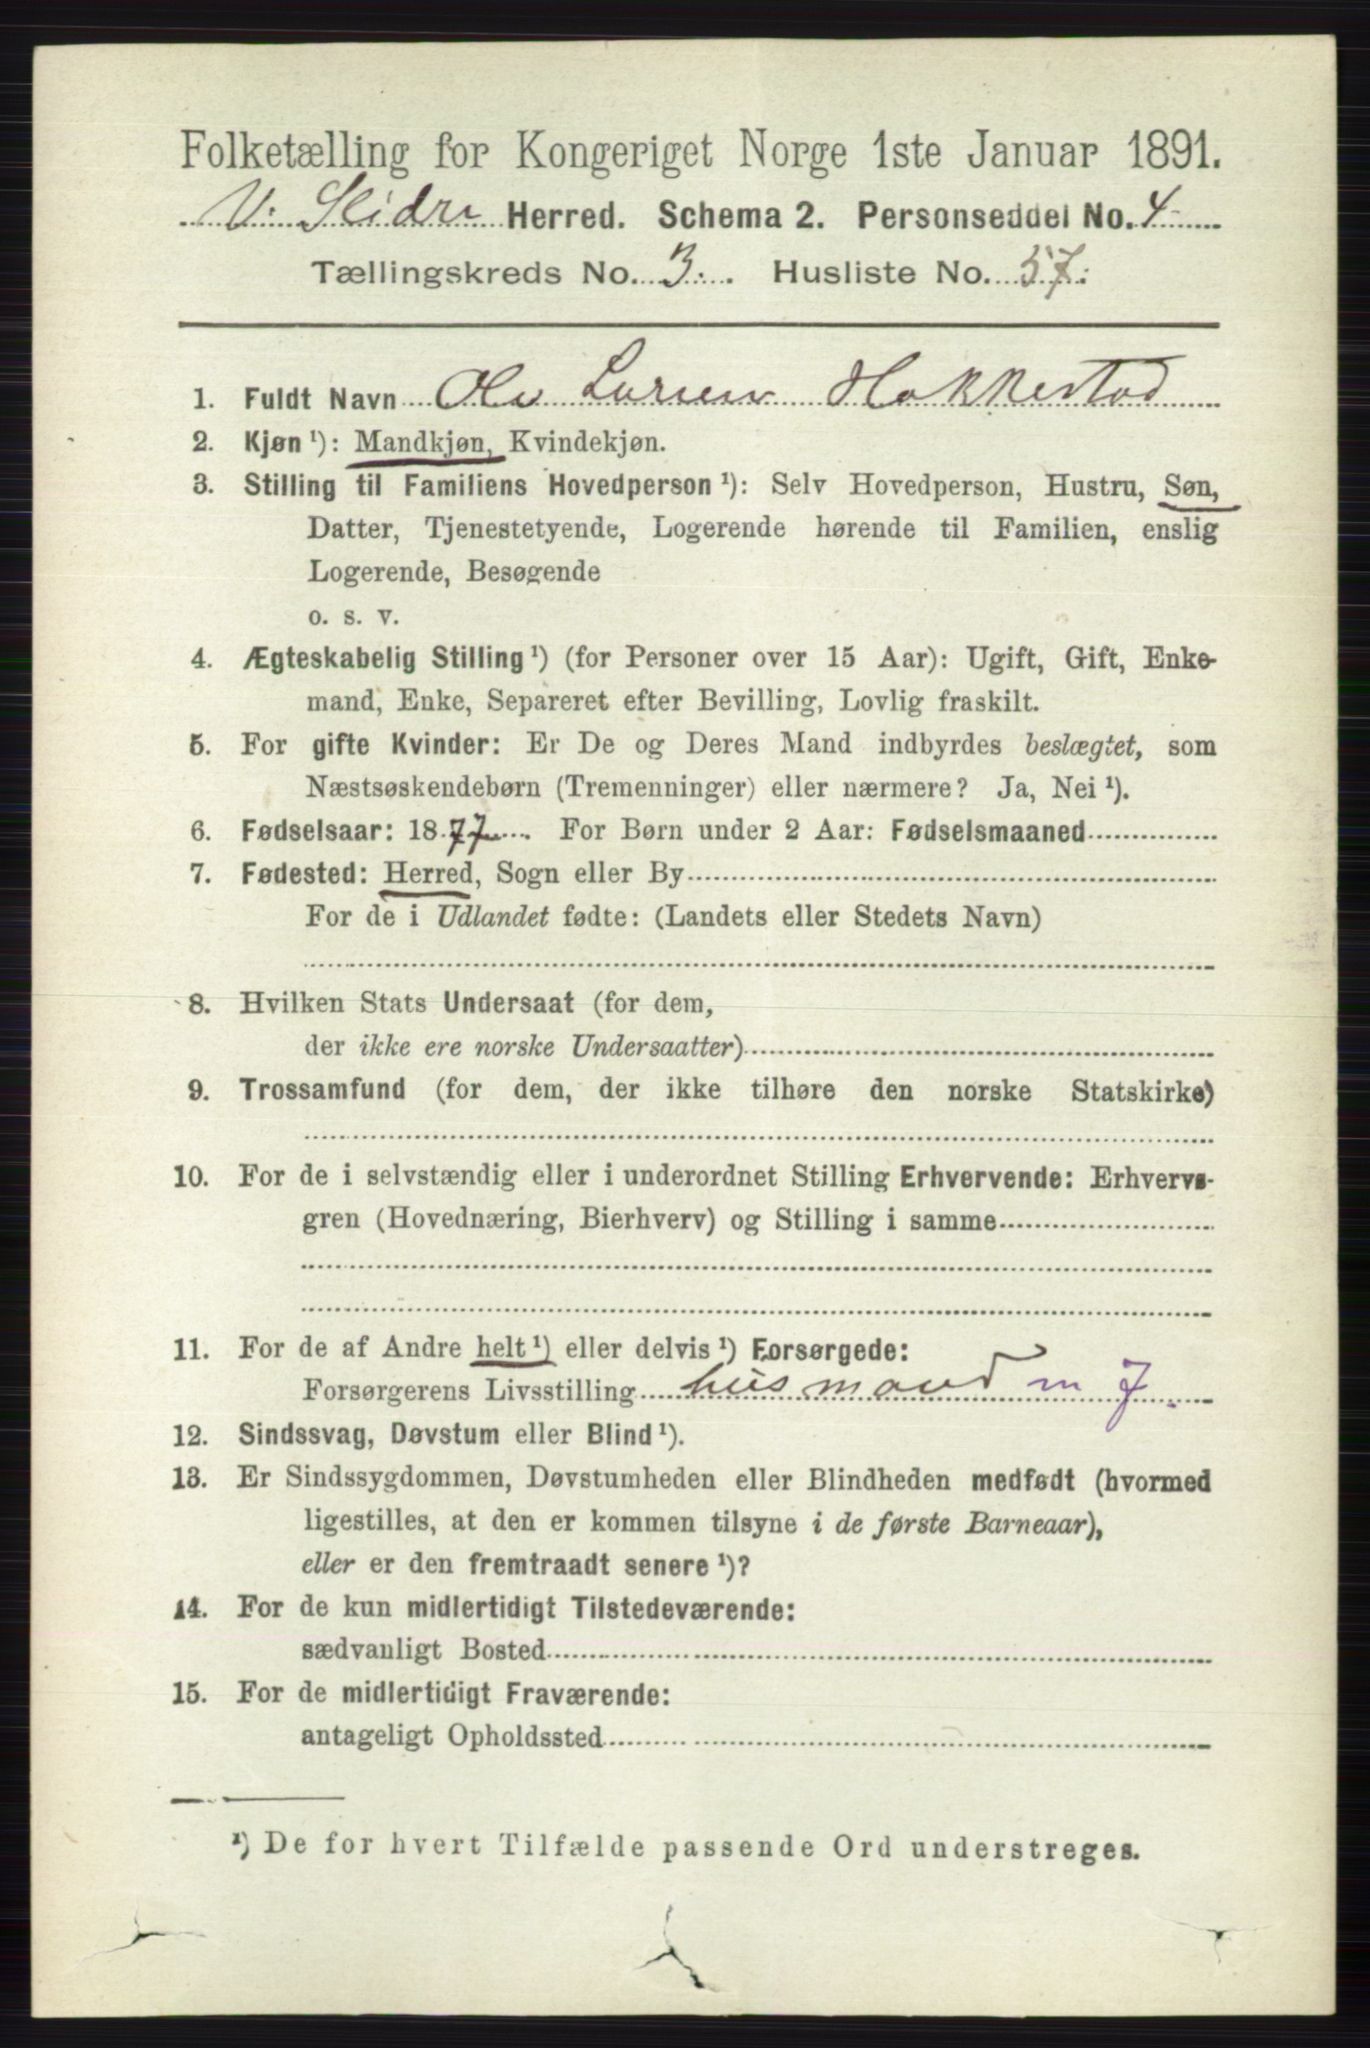 Folketælling for Kongeriget Norge 1ste Januar 1891.
V. Slidre Herred. Schema 2. Personseddel No. 4
Tællingskreds No. 3. Husliste No. 57.
1. Fuldt Navn Ole Larsen Hakkestad
2. Kjøn ¹): Mandkjøn, Kvindekjøn.
3. Stilling til Familiens Hovedperson ¹): Selv Hovedperson, Hustru, Søn,
Datter, Tjenestetyende, Logerende hørende til Familien, enslig
Logerende, Besøgende
o. s. v.
4. Ægteskabelig Stilling ¹) (for Personer over 15 Aar): Ugift, Gift, Enke-
mand, Enke, Separeret efter Bevilling, Lovlig fraskilt.
5. For gifte Kvinder: Er De og Deres Mand indbyrdes beslægtet, som
Næstsøskendebørn (Tremenninger) eller nærmere? Ja, Nei ¹).
6. Fødselsaar: 1877. For Børn under 2 Aar: Fødselsmaaned
7. Fødested: Herred, Sogn eller By
For de i Udlandet fødte: (Landets eller Stedets Navn)
8. Hvilken Stats Undersaat (for dem,
der ikke ere norske Undersaatter)
9. Trossamfund (for dem, der ikke tilhøre den norske Statskirke)
10. For de i selvstændig eller i underordnet Stilling Erhvervende: Erhvervs-
gren (Hovednæring, Bierhverv) og Stilling i samme
11. For de af Andre helt ¹) eller delvis ¹) Forsørgede:
Forsørgerens Livsstilling husmand m J.
12. Sindssvag, Døvstum eller Blind ¹).
13. Er Sindssygdommen, Døvstumheden eller Blindheden medfødt (hvormed
ligestilles, at den er kommen tilsyne i de første Barneaar),
eller er den fremtraadt senere ¹)?
14. For de kun midlertidigt Tilstedeværende:
sædvanligt Bosted
15. For de midlertidigt Fraværende:
antageligt Opholdssted
¹) De for hvert Tilfælde passende Ord understreges.